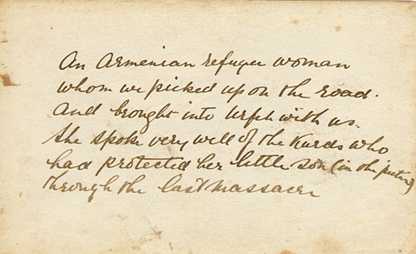 An Armenian refugee woman
whom we picked up on the road.
And brought into Urfa with us.
She spoke very well of the Kurds who
had protected her little son (in the picture)
through the last massacre